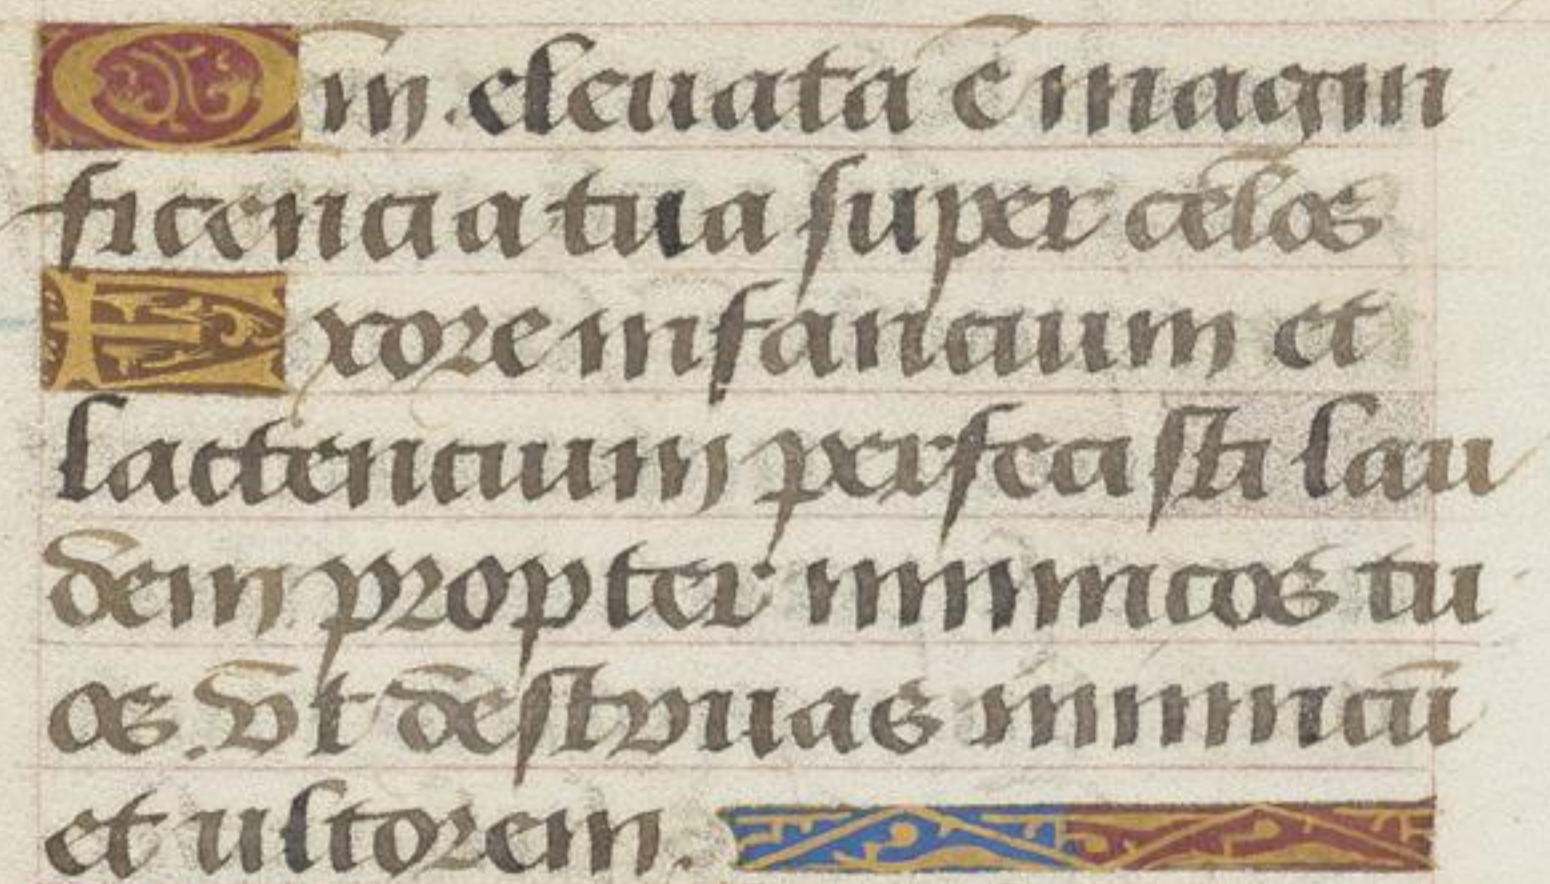 Qm̄. eleuata ē magni
ficencia tua super celos
Ex ore infancium et
lactencium perfecisti lau
dem propter inimicos tu
os. Vt destruas inimicū
et ultorem.